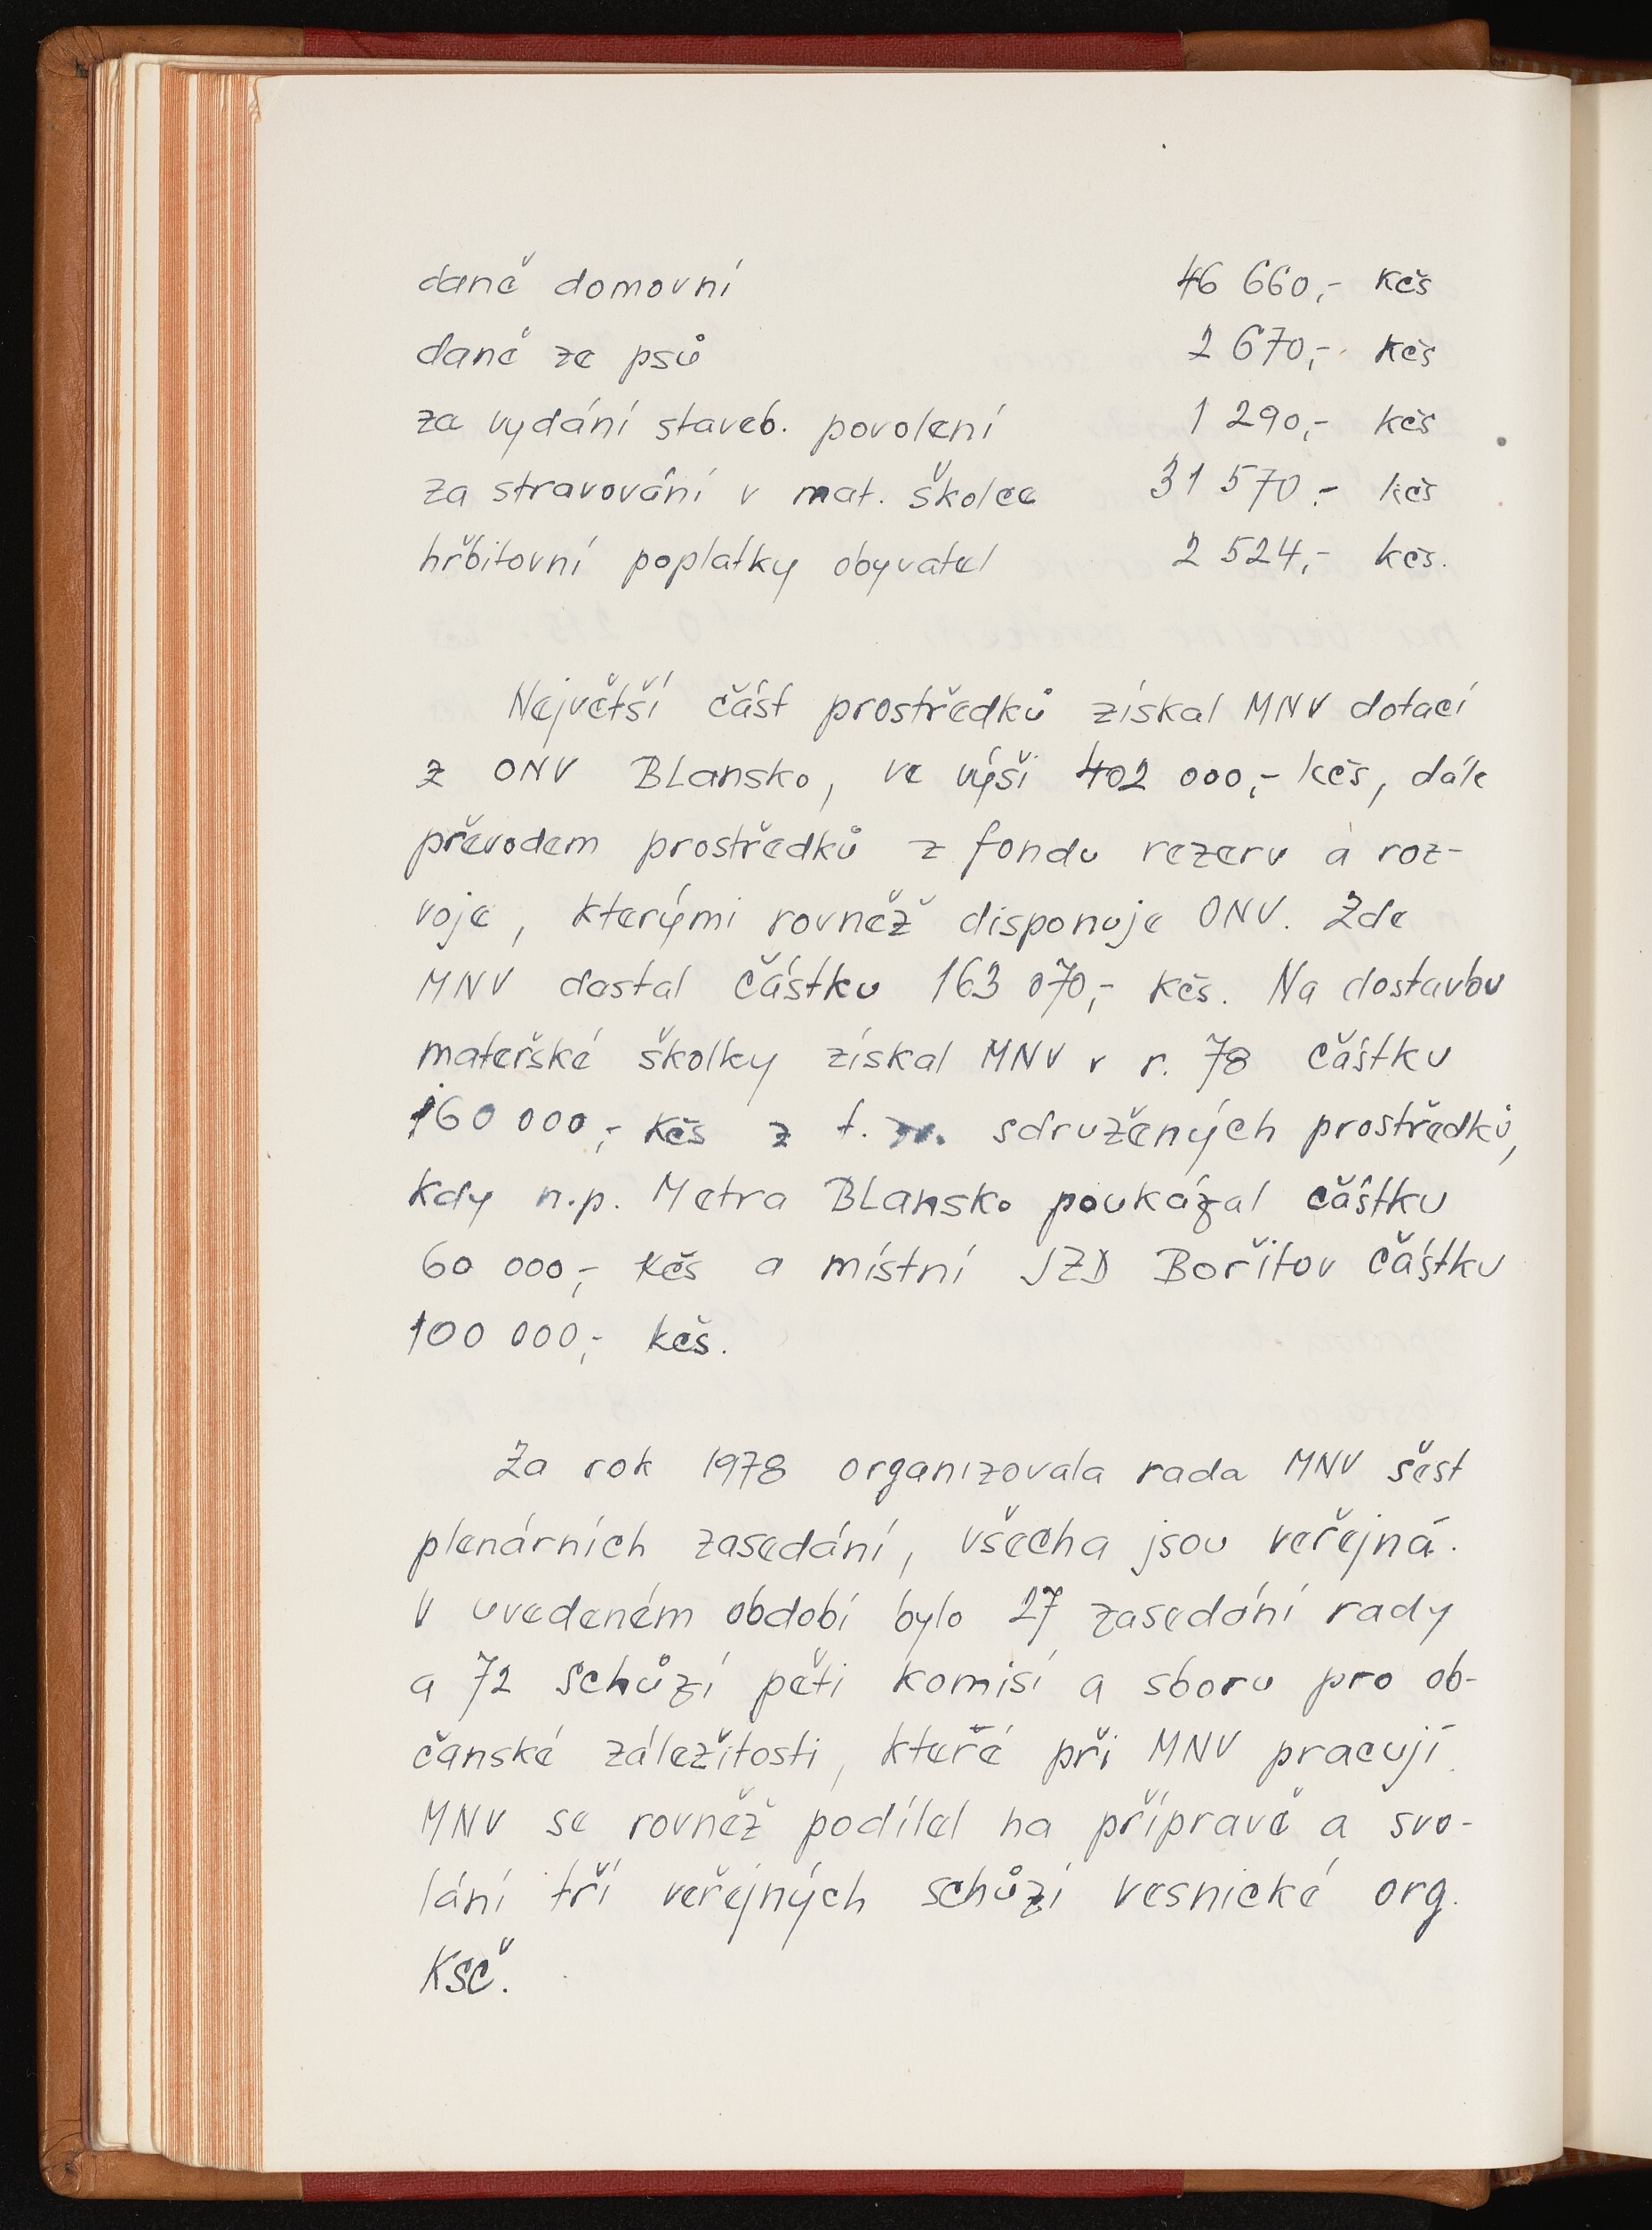 daně domovní 46 660,- Kčs
daně ze psů 2 670,- Kčs
za vydání staveb. povolení 1 290,- Kčs
za stravování v mat. školce 31 570,- Kčs
hřbitovní poplatky obyvatel 2 524,- Kčs.
Největší část prostředků získal MNV dotací
z ONV Blansko, ve výši 402 000,- Kčs, dále
převodem prostředků z fondu rezerv a roz-
voje, kterými rovněž disponuje ONV. Zde
MNV dostal částku 163 070,- Kčs. Na dostavbu
mateřské školky získal MNV v r. 78 částku
160 000,- Kčs z t. zv. sdružených prostředků,
kdy n.p. Metra Blansko poukázal částku
60 000,- Kčs a místní JZD Bořitov částku
100 000,- Kčs.
Za rok 1978 organizovala rada MNV šest
plenárních zasedání, všecha jsou veřejná.
V uvedeném období bylo 27 zasedání rady
a 72 schůzí pěti komisí a sboru pro ob-
čanské záležitosti, kteřé při MNV pracují.
MNV se rovněž podílel na přípravě a svo-
lání tří veřejných schůzí vesnické org.
KSČ.